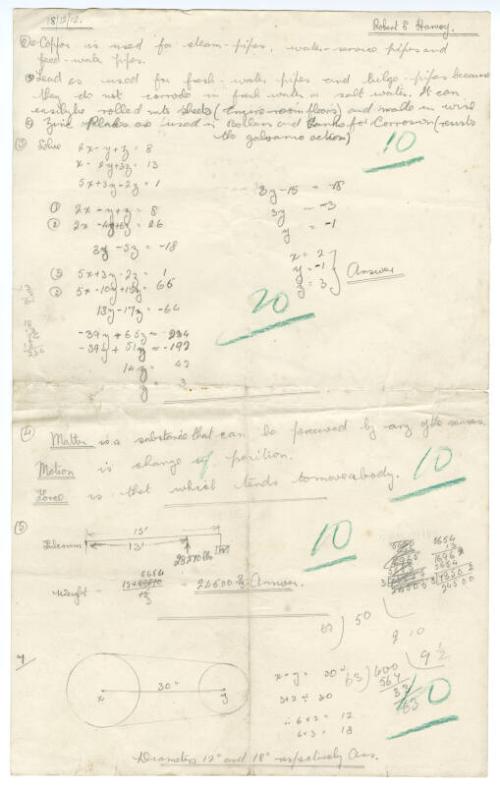 18/12/12.
Robert S Harvey.
Copper is used for steam-pipes, water-service pipes and
feed-water pipes.
Lead is used for fresh-water pipes and bilge-pipes because
they do not corrode in fresh water or salt water. It can
easily be rolled into sheets (Engine-room floors) and made in wire
Zinc Plates are used in Boilers and Tanks for Corrosion (resists
the galvanic action)
10
③ Solve 2x - y + z = 8
x - 2y + 3z = 13
5x + 3y - 2z = 1
① 2x - y + z = 8
② 2x - 4y + 6z = 26
3y - 5z = -18
③ 5x + 3y - 2z = 1
② 5x - 10y + 15z = 65
13y - 17z = -64
-39y + 65z = 234
-39y + 51z = 192
14z = 42
z = 3
3y - 15 = -18
3y = -3
y = -1
x = 2
y = -1
z = 3
Answer
20
④ Matter is a substance that can be perceived by any of the senses.
Motion is change of position.
Force is that which tends to move a body.
10
⑤
15'
Fulcrum
13'
Weight
= 24500 lb Answer.
10
63 ) 50
9 10
9 1/2
7
x
30"
y
x - y = 30"
3 + 2 = 30
∴ 6 × 2 = 12
6 × 3 = 18
63 ) 600
564
10
Diameters 12" and 18" respectively Ans.